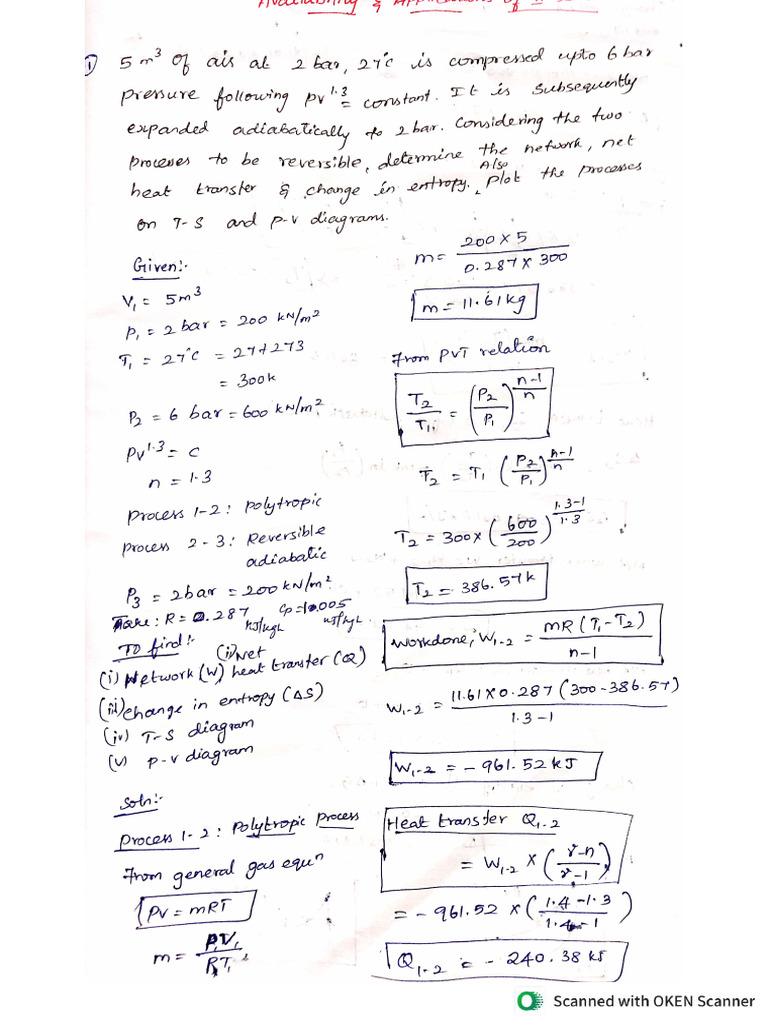 Availability & Applications of
① 5 m³ of air at 2 bar, 27°C is compressed upto 6 bar
pressure following pv^1.3 = constant. It is subsequently
expanded adiabatically to 2 bar. Considering the two
processes to be reversible, determine the network, net
heat transfer & change in entropy. Also plot the processes
on T-S and p-v diagrams.
Given:-
V₁ = 5m³
P₁ = 2 bar = 200 kN/m²
T₁ = 27°C = 27+273
= 300k
P₂ = 6 bar = 600 kN/m²
PV^1.3 = C
n = 1.3
Process 1-2: Polytropic
Process 2-3: Reversible
adiabatic
P₃ = 2bar = 200 kN/m²
Take: R = 0.287 kJ/kgk Cp = 1.005 kJ/kgk
To find:-
(i) Network (W) (ii) Net heat transfer (Q)
(iii) change in entropy (ΔS)
(iv) T-S diagram
(v) P-V diagram
Soln:-
Process 1-2: Polytropic Process
From general gas equn
PV = mRT
m = P₁V₁ / RT₁
m = 200 × 5 / 0.287 × 300
m = 11.61 kg
From PVT relation
T₂/T₁ = (P₂/P₁)^(n-1/n)
T₂ = T₁ (P₂/P₁)^(n-1/n)
T₂ = 300 × (600/200)^(1.3-1/1.3)
T₂ = 386.57k
Workdone, W₁₋₂ = mR (T₁-T₂) / n-1
W₁₋₂ = 11.61 × 0.287 (300-386.57) / 1.3-1
W₁₋₂ = - 961.52 kJ
Heat transfer Q₁₋₂
= W₁₋₂ × (γ-n / γ-1)
= - 961.52 × (1.4-1.3 / 1.4-1)
Q₁₋₂ = - 240.38 kJ
Scanned with OKEN Scanner